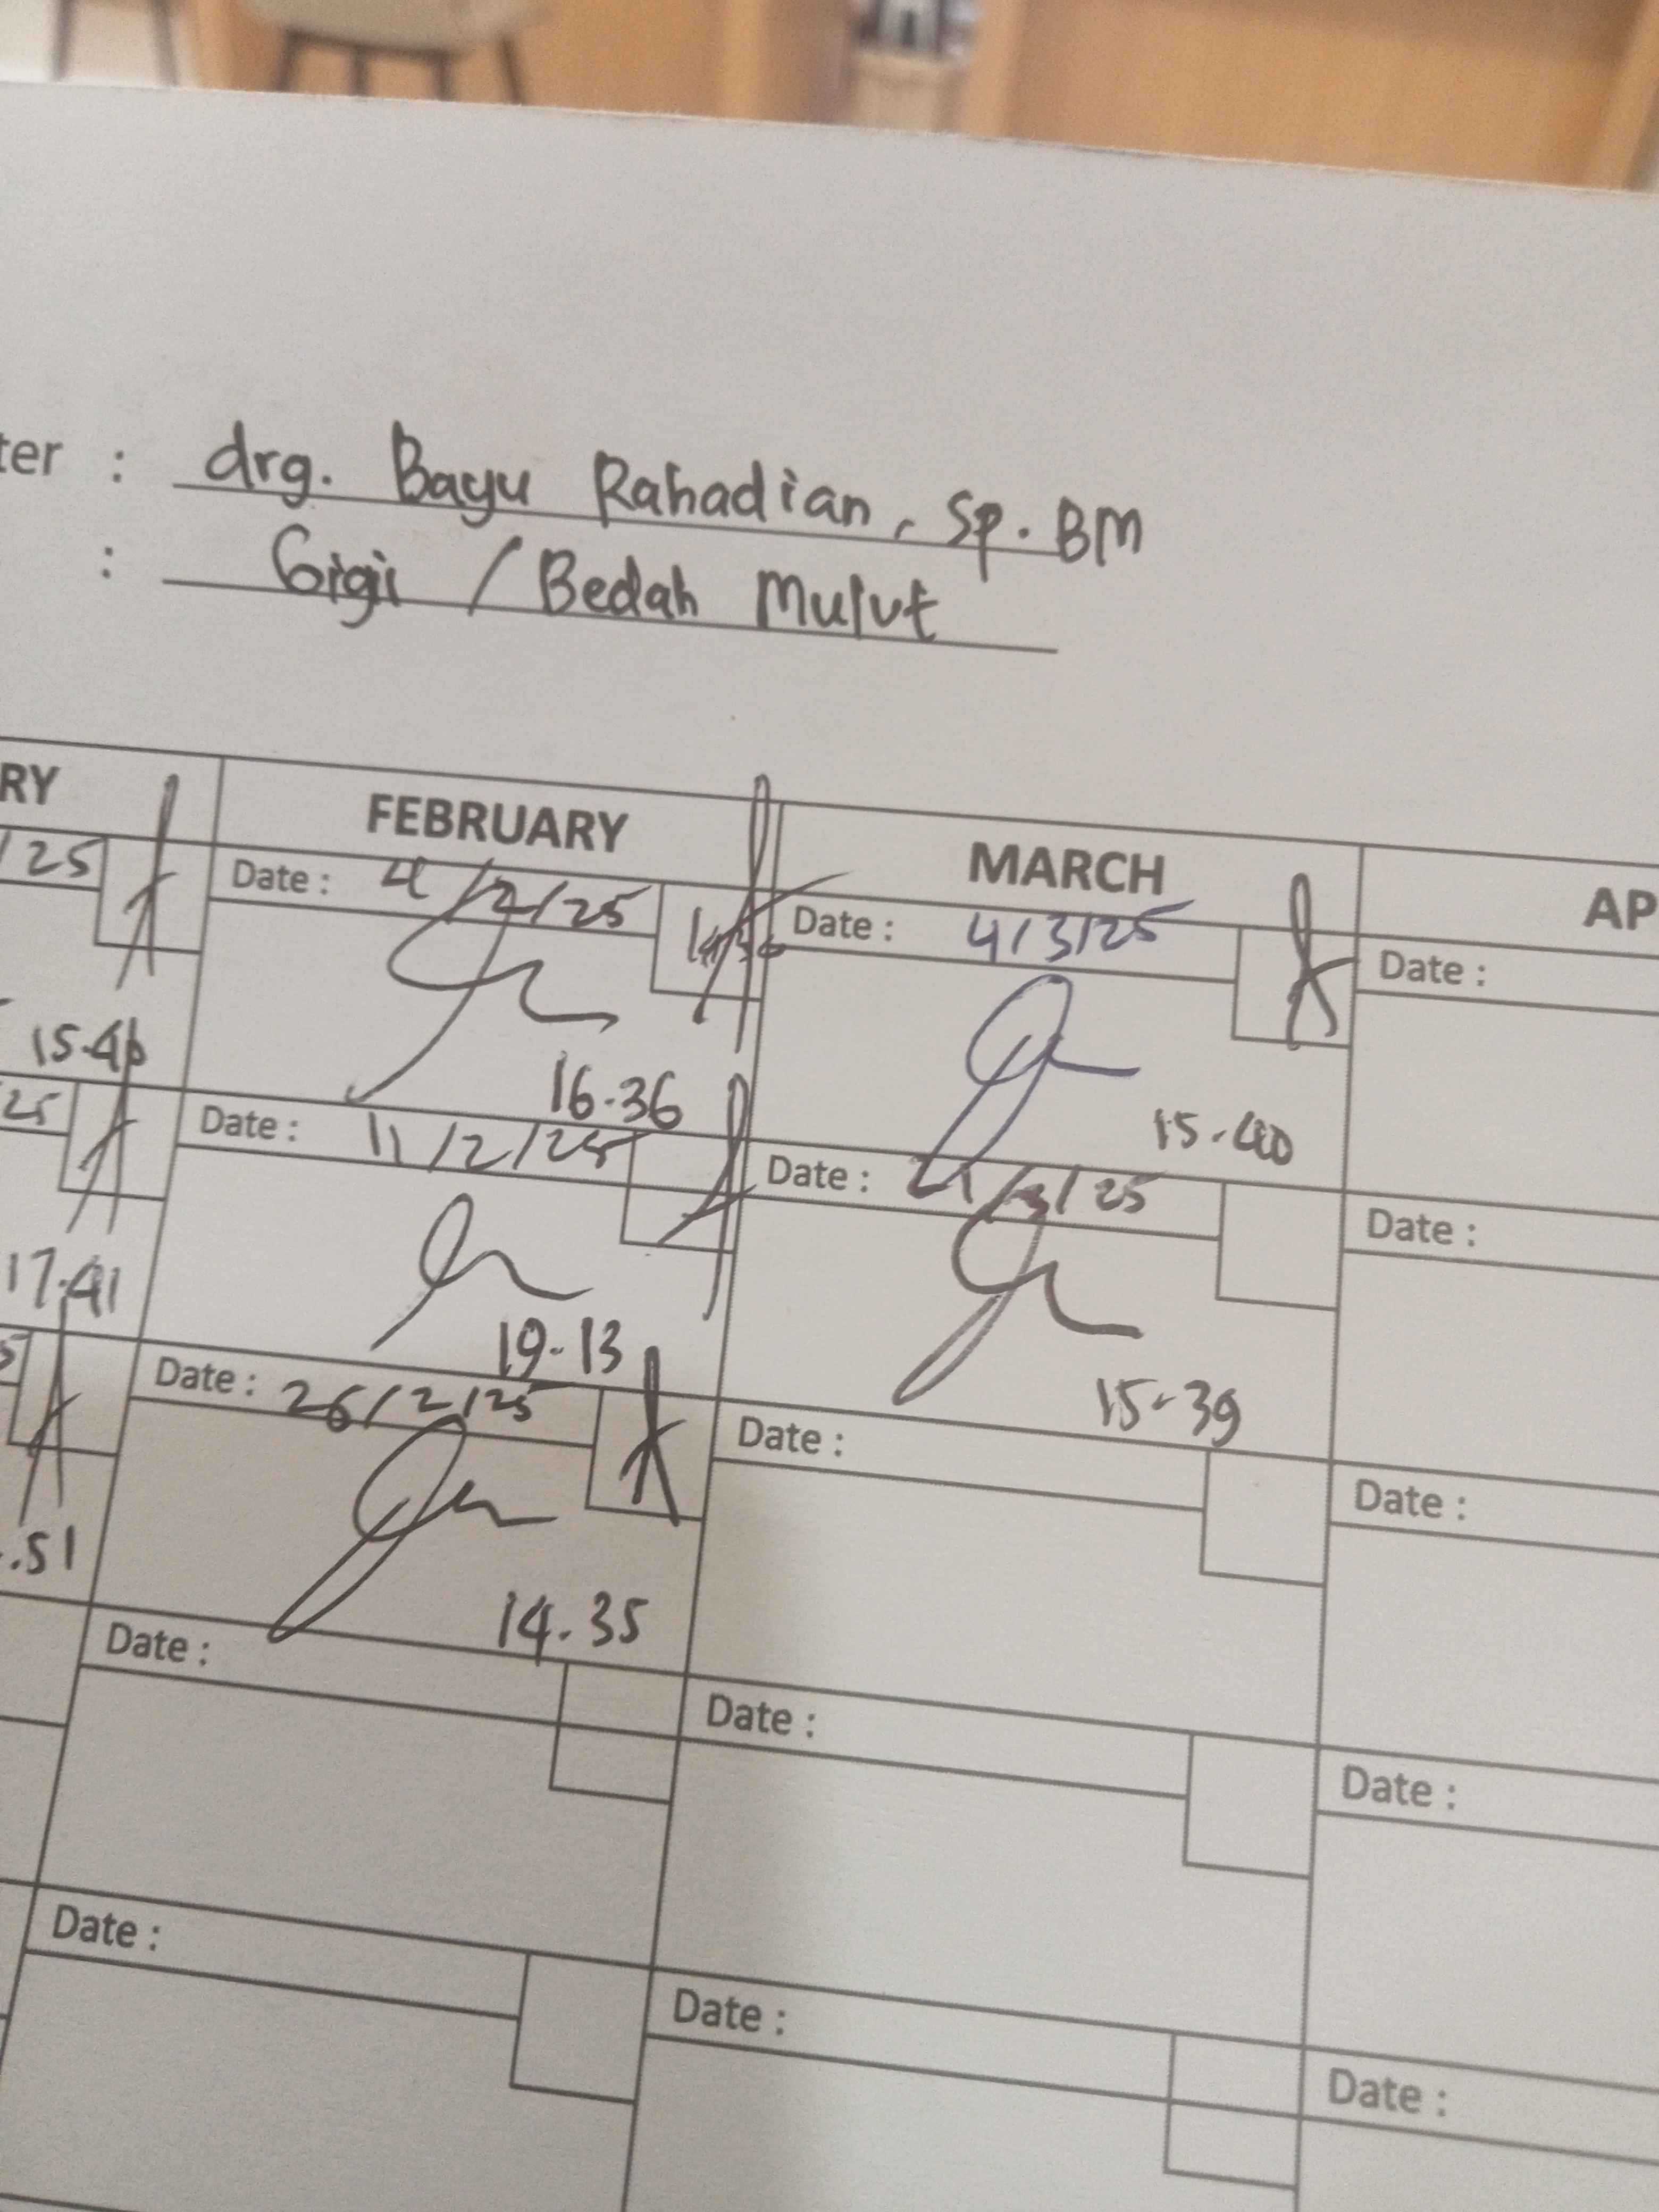 ter : drg. Bayu Rahadian, Sp. BM
: Gigi / Bedah Mulut
RY FEBRUARY MARCH AP
/25 Date : 4/2/25 Date : 4/3/25 Date :
15.46 16.36 15.40
25 Date : 11/2/25 Date : 21/3/25 Date :
17.41 19.13 15.39
5 Date : 26/2/25 Date : Date :
.51 14.35
Date : Date : Date :
Date : Date : Date :